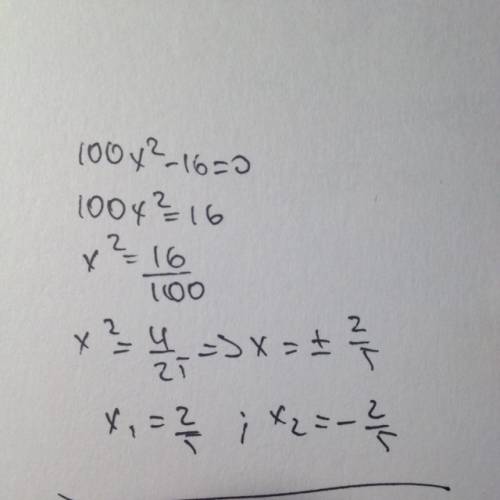 100x²-16=0
100x²=16
x²=16/100
x²=4/25=>x=±2/5
x₁=2/5 ; x₂=-2/5